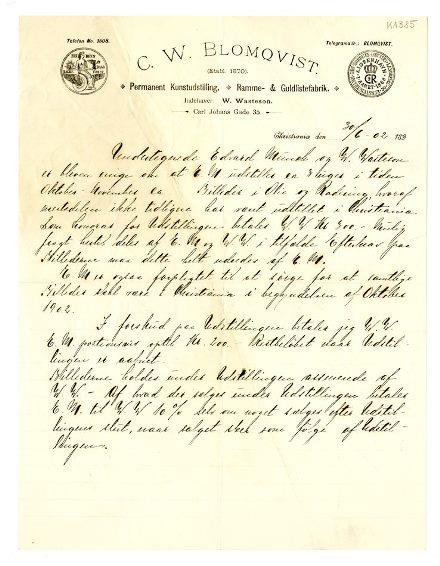 KA385
Telefon No. 1608.
Telegramadr.: BLOMQVIST.
C. W. BLOMQVIST.
(Etabl. 1870).
Permanent Kunstudstilling. Ramme- & Guldlistefabrik.
Indehaver W. Wasteson.
Carl Johans Gade 35
Christiania den 30/6 - 02 189
Undertegnede Edvard Munch og W. Wasteson
er bleven enige om at E M udstiller ca 3 uger i tiden
Oktober November ca Billeder i Olie og Radering hvoraf
ikke tidligere har vært udstillet i Christiania
Som honorar for Udstillingen betaler W W Kr 300 -
fragt deles af E. M og W. W i tilfælde
Billederne maa dette helt udredes af E M.
E M er ogsaa forpligtet til at sørge for at samtlige
Billeder skal være i Christiania i begyndelsen af Oktober
1902.
I forskud paa Udstillingen betaler jeg W. W.
E. M. portionsvis optil Kr. 200 - Restbeløbet naar Udstil-
lingen er aabnet.
Billederne holdes under Udstillingen assurerede af
W W - Af hvad der sælges under Udstillingen betaler
E. M. til W W 10 % selv om noget sælges efter Udstil-
lingens slut, naar salget sker som følge af Udstil-
lingen.